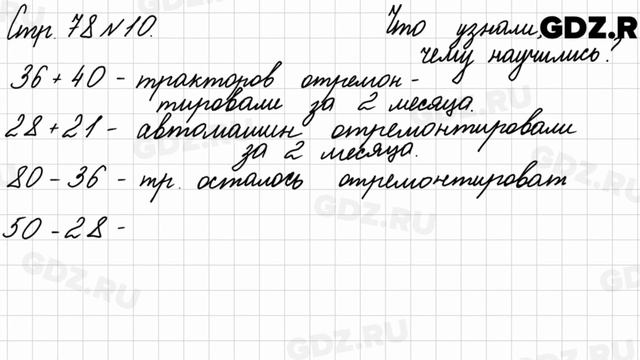 Стр. 78 № 10.
Что узнали,
чему научились?
GDZ.R
36 + 40 - тракторов отремон -
тировали за 2 месяца.
28 + 21 - автомашин отремонтировали
за 2 месяца.
80 - 36 - тр. осталось отремонтироват
50 - 28 -
GDZ.RU
GDZ.RU
GDZ.RU
GDZ.RU